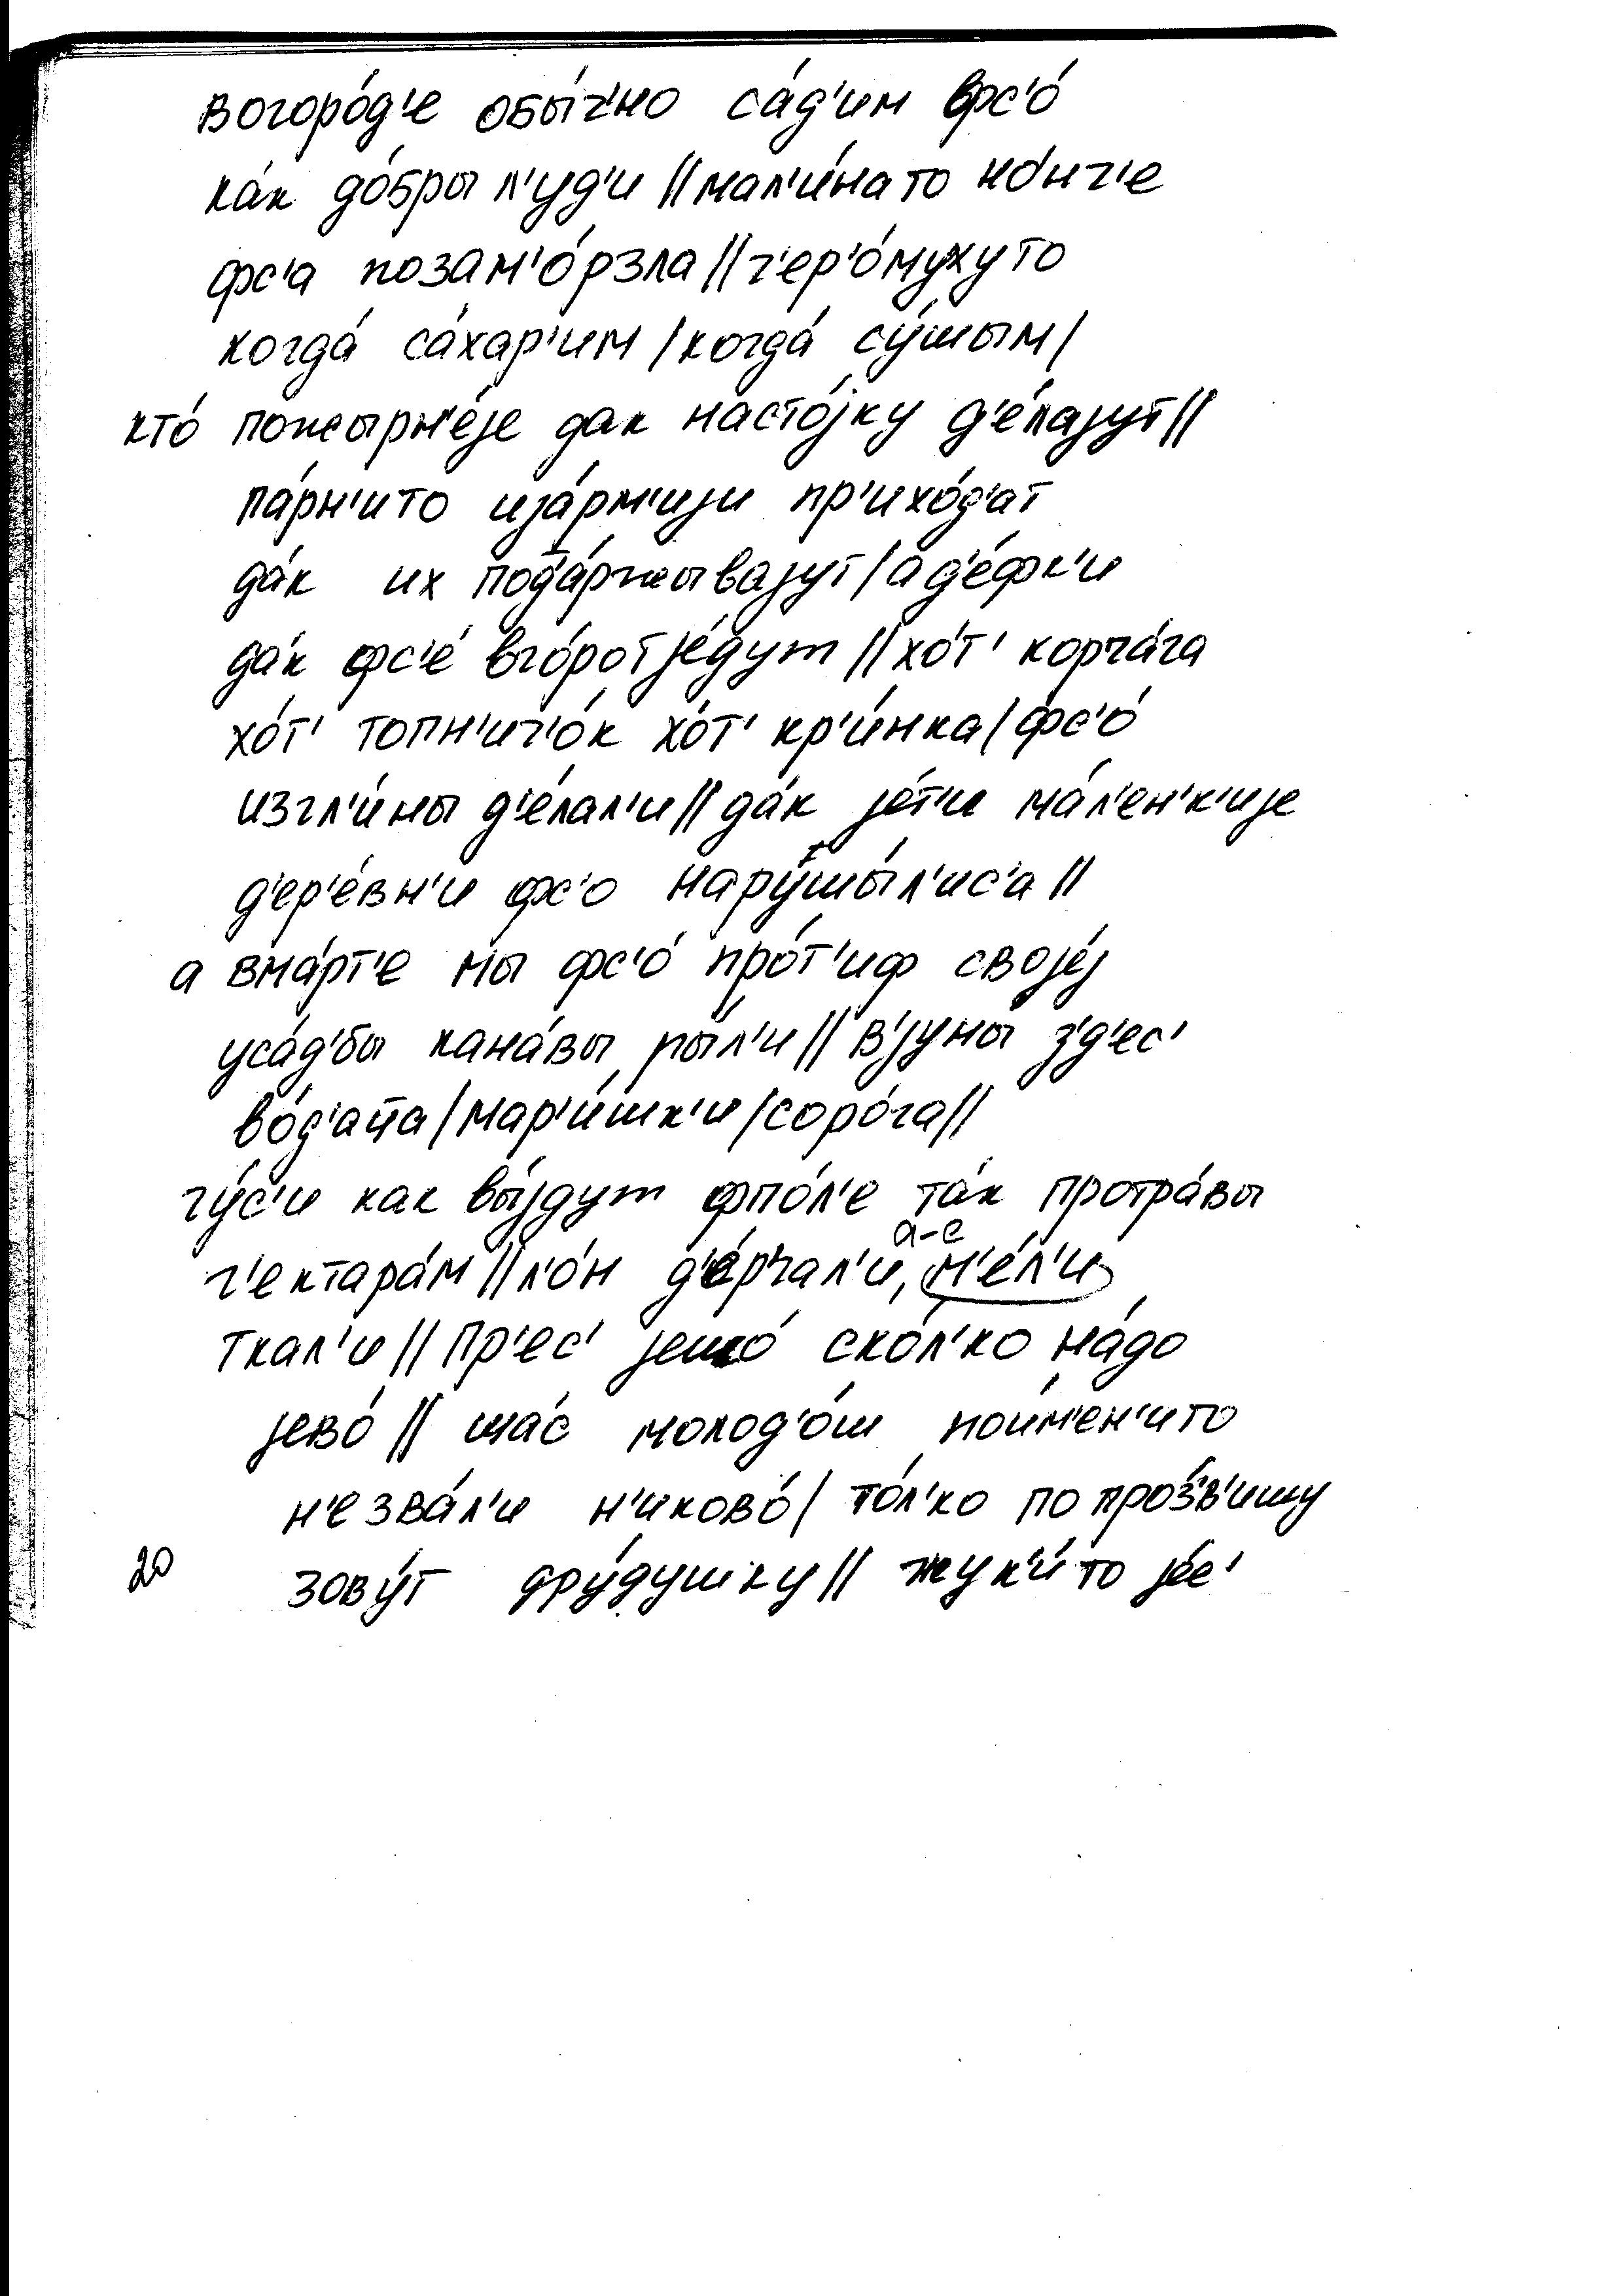 вогоро́д'е обы́ч'но са́д'им фс'о́
ка́к до́бры л'уд'и || мал'и́на то но́нч'е
фс'а позам'о́рзла || ч'ер'о́муху то
когда́ са́хар'им / когда́ су́шым /
кто́ пожырн'е́је дак насто́јку д'е́лајут ||
па́рн'и то иjа́рм'иjи пр'ихо́д'ат
да́к их под'а́ржывајут / а д'е́фк'и
да́к фс'е́ вго́рот је́дут || хо́т' корча́га
хо́т' топн'ич'о́к хо́т' кр'и́нка / фс'о́
изгл'и́ны д'е́лал'и || да́к је́т'и ма́л'ен'к'ије
д'ер'е́вн'и фс'о нару́шы́л'ис'а ||
а вма́рт'е мы фс'о́ про́т'иф својеј
уса́д'бы кана́вы ры́л'и || в'јуны́ з'д'ес'
во́д'аца / мар'и́шк'и / соро́га ||
гу́с'и как вы́јдут фпо́л'е та́к протра́вы
г'ектара́м || л'о́н д'е́ргал'и, м'е́л'и а-е
ткал'и || пр'ес' јешо́ ско́л'ко на́до
јево́ || ша́с молод'о́ш пои́м'ен'и то
н'езва́л'и н'иково́ / то́л'ко по про́з'в'ишу
20 зову́т дру́душку || жук'и́ то је́с'